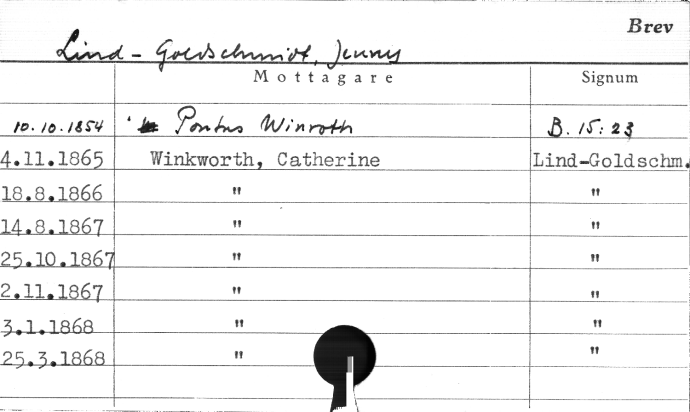 Brev
Lind-Goldschmidt, Jenny
Mottagare Signum
10.10.1854 Pontus Winroth B. 15:23
4.11.1865 Winkworth, Catherine Lind-Goldschm.
18.8.1866 " "
14.8.1867 " "
25.10.1867 " "
2.11.1867 " "
3.1.1868 " "
25.3.1868 " "